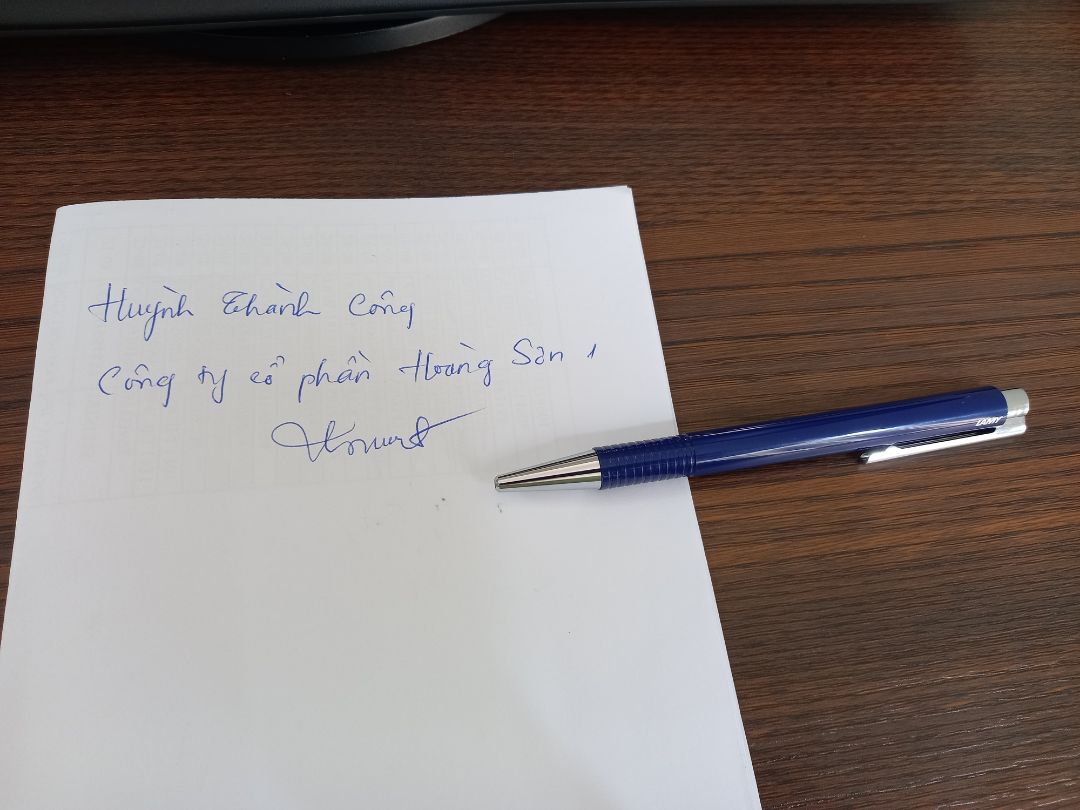 Huỳnh Thành Công
Công ty cổ phần Hoàng Sơn 1
LAMY